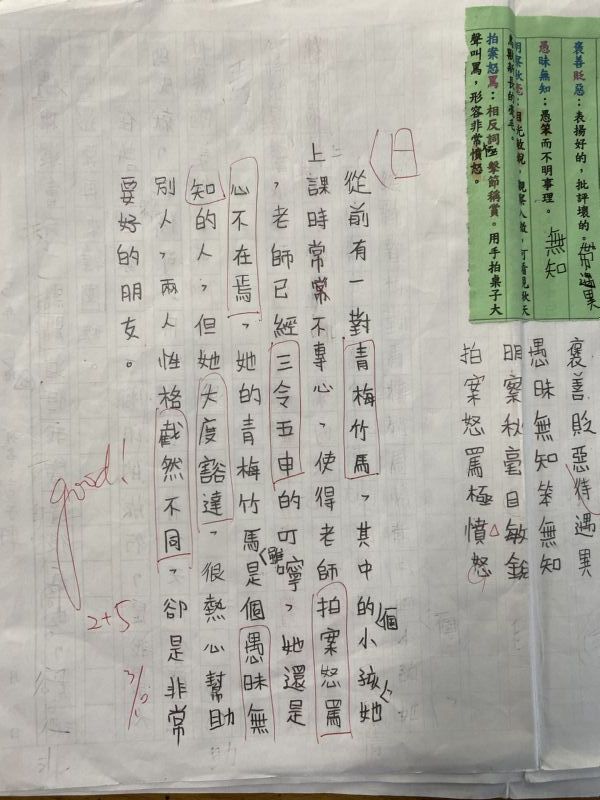 褒善貶惡：表揚好的，批評壞的。
待遇異
愚昧無知：愚笨而不明事理。
無知
拍案怒罵：相反詞：擊節稱賞。用手拍桌子大
聲叫罵，形容非常憤怒。
極
褒善貶惡待遇異
愚昧無知笨無知
明察秋毫目敏銳
拍案怒罵極憤怒
從前有一對青梅竹馬，其中的小孩她
個
上課時常常不專心，使得老師拍案怒罵
，老師已經三令五申的叮嚀，她還是
心不在焉，她的青梅竹馬是個愚昧無
雖
知的人，但她大度豁達，很熱心幫助
別人，兩人性格截然不同，卻是非常
要好的朋友。
good!
2+5
3/10